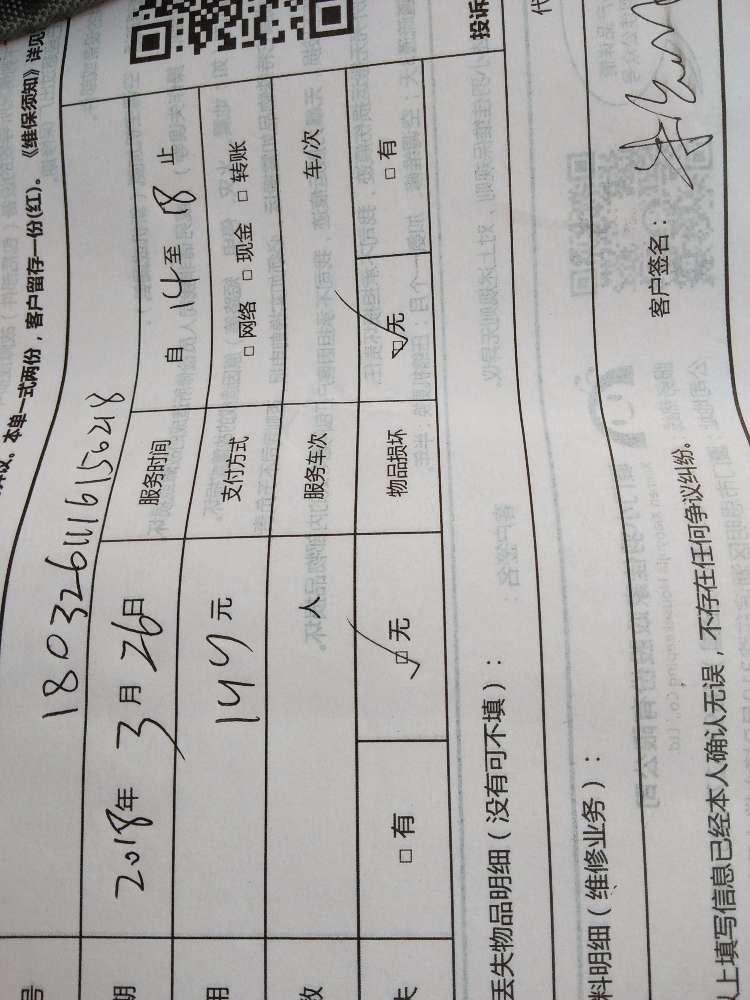 议。本单一式两份，客户留存一份(红)。《维保须知》详见
号 1803261116156218
期 2018年3月26日 服务时间 自14至18止
用 144元 支付方式 □网络 □现金 □转账
数 人 服务车次 车/次
失 □有 ☑无 物品损坏 ☑无 □有
投诉
丢失物品明细（没有可不填）：
代
料明细（维修业务）：
客户签名：
以上填写信息已经本人确认无误，不存在任何争议纠纷。